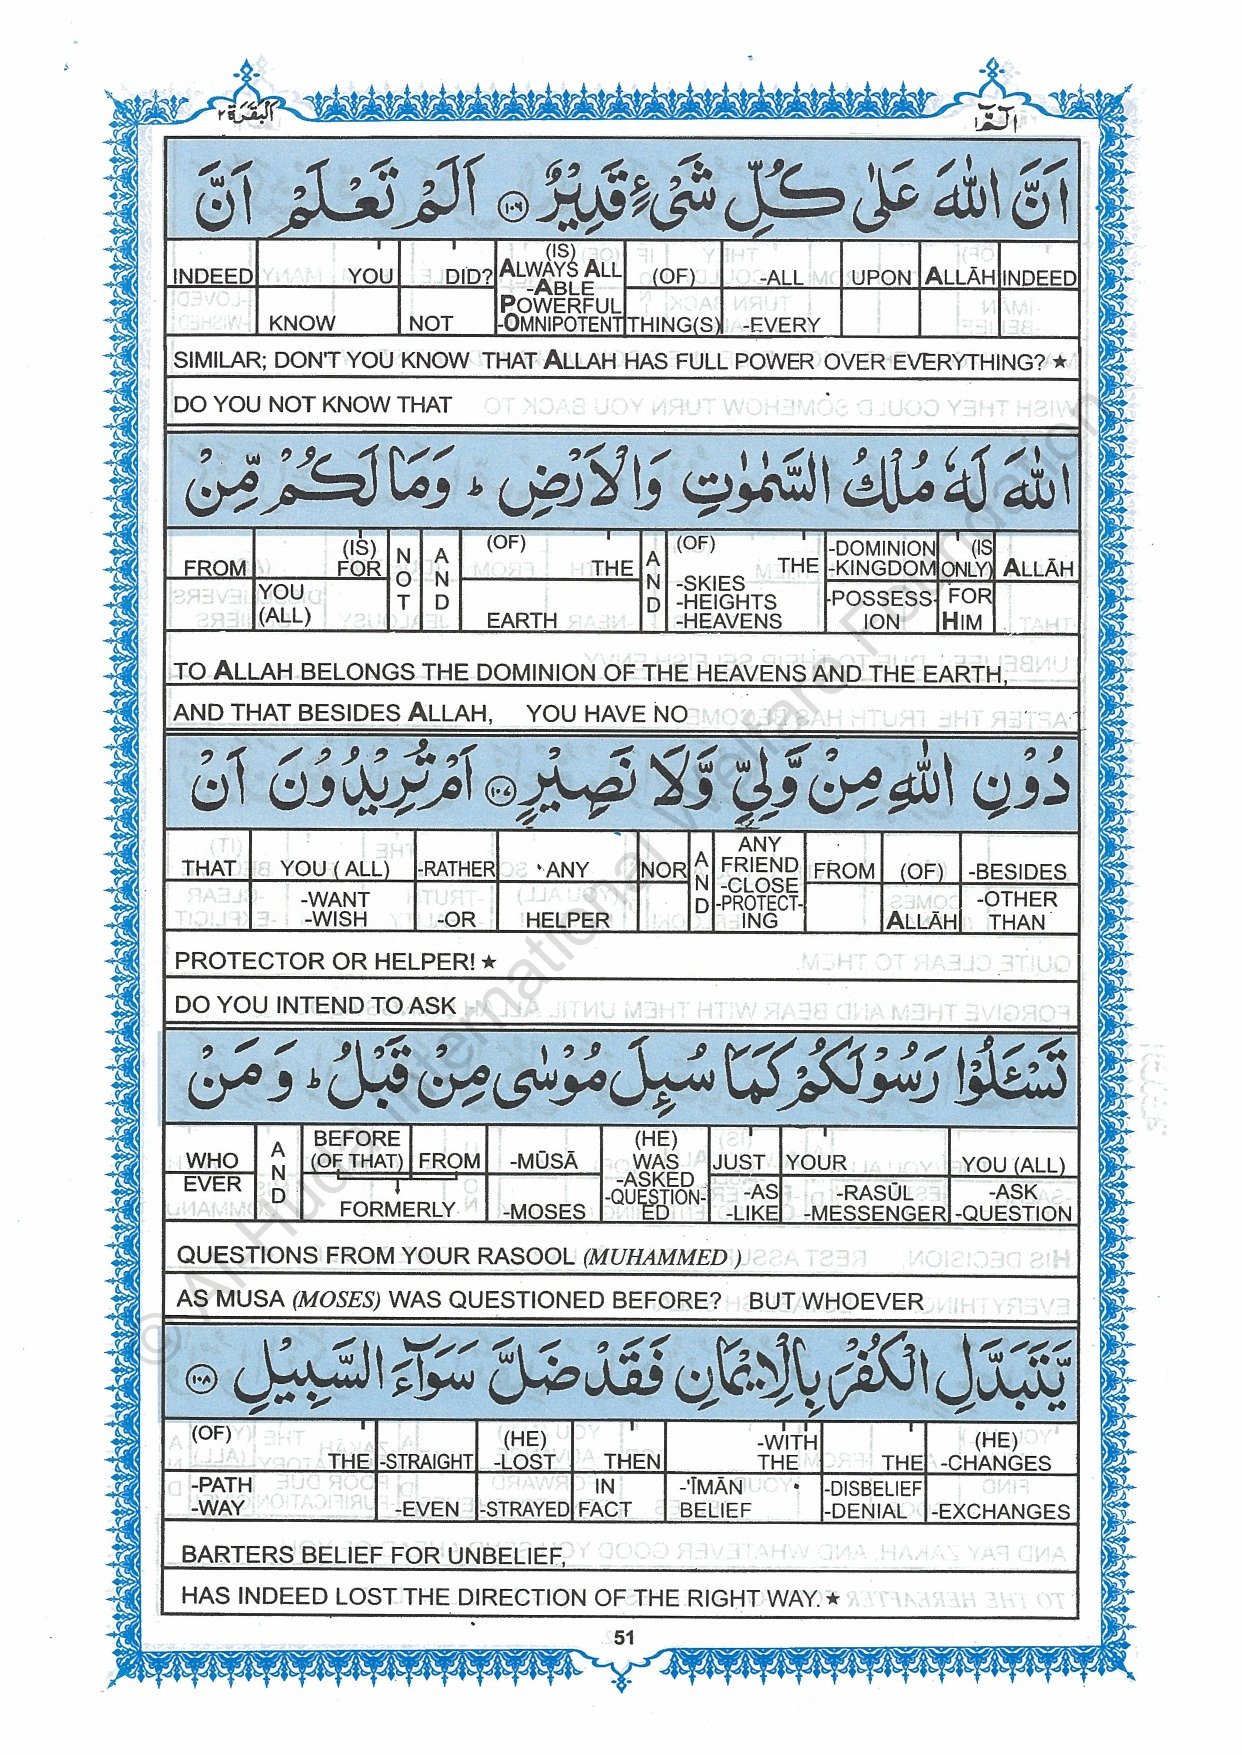 الٓمّٓ ١
اَلْبَقَرَة ٢
اَنَّ اللّٰهَ عَلٰى كُلِّ شَىْءٍ قَدِيْرٌ ١٠٦ اَلَمْ تَعْلَمْ اَنَّ
INDEED YOU DID? (IS) ALWAYS ALL -ABLE POWERFUL -OMNIPOTENT (OF) -ALL UPON ALLĀH INDEED
KNOW NOT THING(S) -EVERY
SIMILAR; DON'T YOU KNOW THAT ALLAH HAS FULL POWER OVER EVERYTHING? ★
DO YOU NOT KNOW THAT
اللّٰهَ لَهٗ مُلْكُ السَّمٰوٰتِ وَالْاَرْضِ ؕ وَمَا لَكُمْ مِّنْ
FROM (IS) FOR NOT AND (OF) THE AND (OF) THE -DOMINION -KINGDOM (IS ONLY) ALLĀH
YOU (ALL) EARTH -SKIES -HEIGHTS -HEAVENS -POSSESS- ION FOR HIM
TO ALLAH BELONGS THE DOMINION OF THE HEAVENS AND THE EARTH,
AND THAT BESIDES ALLAH, YOU HAVE NO
دُوْنِ اللّٰهِ مِنْ وَّلِيٍّ وَّلَا نَصِيْرٍ ١٠٧ اَمْ تُرِيْدُوْنَ اَنْ
THAT YOU ( ALL) -RATHER ANY NOR AND ANY FRIEND -CLOSE -PROTECT- ING FROM (OF) -BESIDES
-WANT -WISH -OR HELPER ALLĀH -OTHER THAN
PROTECTOR OR HELPER! ★
DO YOU INTEND TO ASK
تَسْـَٔلُوْا رَسُوْلَكُمْ كَمَا سُىِٕلَ مُوْسٰى مِنْ قَبْلُ ؕ وَ مَنْ
WHO AND BEFORE (OF THAT) FROM -MŪSĀ (HE) WAS -ASKED -QUESTION- ED JUST YOUR YOU (ALL)
EVER FORMERLY -MOSES -AS -LIKE -RASŪL -MESSENGER -ASK -QUESTION
QUESTIONS FROM YOUR RASOOL (MUHAMMED )
AS MUSA (MOSES) WAS QUESTIONED BEFORE? BUT WHOEVER
يَّتَبَدَّلِ الْكُفْرَ بِالْاِيْمَانِ فَقَدْ ضَلَّ سَوَآءَ السَّبِيْلِ ١٠٨
(OF) THE -STRAIGHT (HE) -LOST THEN -WITH THE THE (HE) -CHANGES
-PATH -WAY -EVEN -STRAYED IN FACT -'ĪMĀN BELIEF -DISBELIEF -DENIAL -EXCHANGES
BARTERS BELIEF FOR UNBELIEF,
HAS INDEED LOST THE DIRECTION OF THE RIGHT WAY. ★
51
© Al Huda International Welfare Foundation